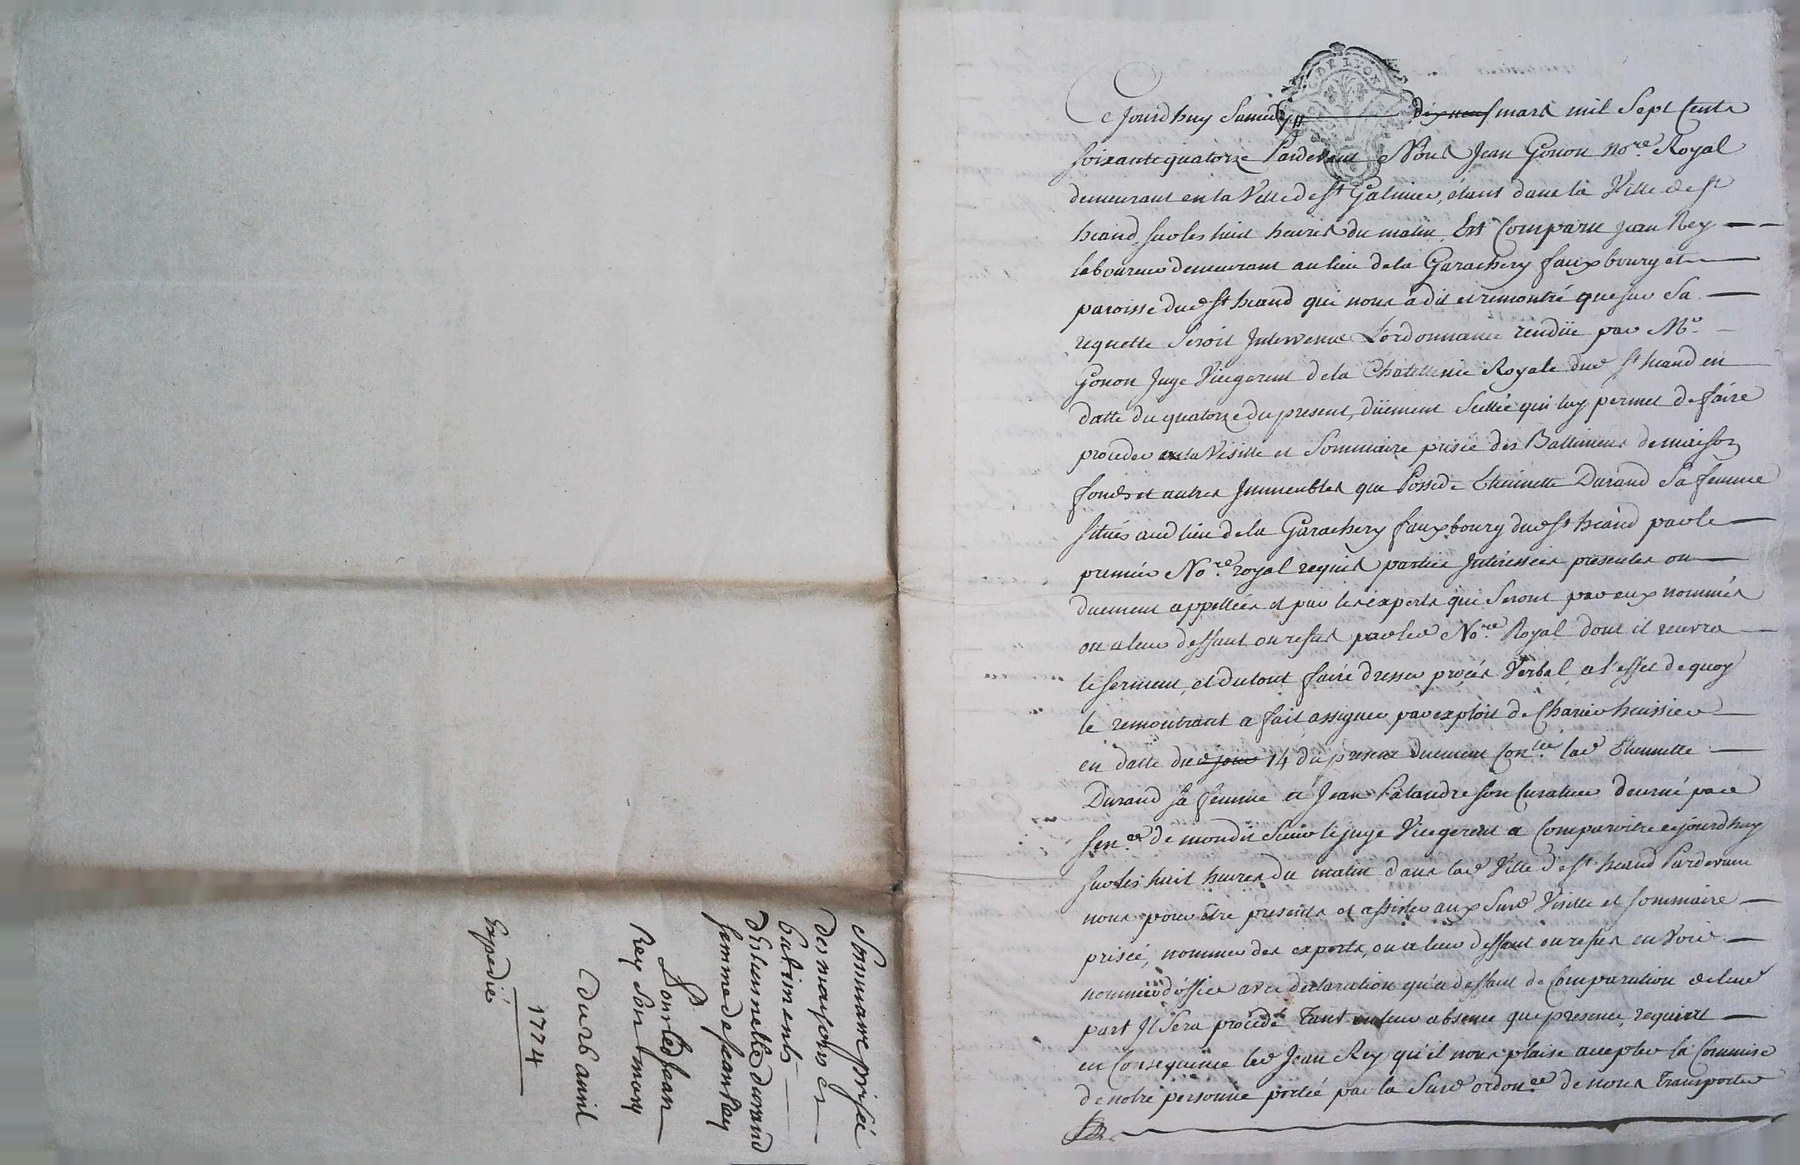 Sommaire prisée
des maisons et
batiments
d'Estiennette durand
femme de Jean Rey
Pour led Jean
Rey Son mary
du 26 avril
1774
Expedié
DE LYON
Ce Jourdhuy Samedy dix neuf mars mil Sept Cents
soixante quatorze Pardevant Nous Jean Gonon no.re Royal
demeurant en la Ville de st Galmier, étant dans la Ville de st
heand, sur les huit heures du matin, Est Comparu Jean Rey
laboureur demeurant au lieu de la Garachery fauxbourg et
paroisse dud st heand qui nous a dit et remontré que sur Sa
requette Seroit Intervenue L'ordonnance rendüe par Me
Gonon Juge Vicegerent de la Chatellenie Royale dud st heand en
datte du quatorze du present, düement Scellée qui luy permet de faire
proceder a la Visitte et Sommaire prisée des Battiments de maison
fonds et autres Immeubles que Possede Etiennette Durand Sa femme
situés aud lieu de la Garachery fauxbourg dud st heand par le
premier No.re royal requis parties Intéressées presentes ou
duement appellées et par les experts qui Seront par eux nommés
ou a leur deffaut ou refus par led No.re Royal dont il recevra
le serment, et du tout faire dresser procès Verbal, a l'effet de quoy
le remontrant a fait assigner par exploit de Charier huissier
en datte dud jour 14 du present duement Con.llé lad Etiennette
Durand sa femme et Jean Palandre son Curateur decerné par
sen.ce de mondit Sieur le juge Vicegerent a Comparoitre cejourdhuy
sur les huit heures du matin dans lad Ville de st heand Pardevant
nous pour être presents et assister aux Susd Visitte et sommaire
prisée, nommer des experts, ou a leur deffaut ou refus en Voir
nommer d'office avec declaration qu'a deffaut de Comparution de leur
part Il Sera procédé Tant en leur absence que presence, requerant
en Consequence led Jean Rey qu'il nous plaise accepter la Commise
de notre personne portée par la Susd ordon.ce de nous Transporter